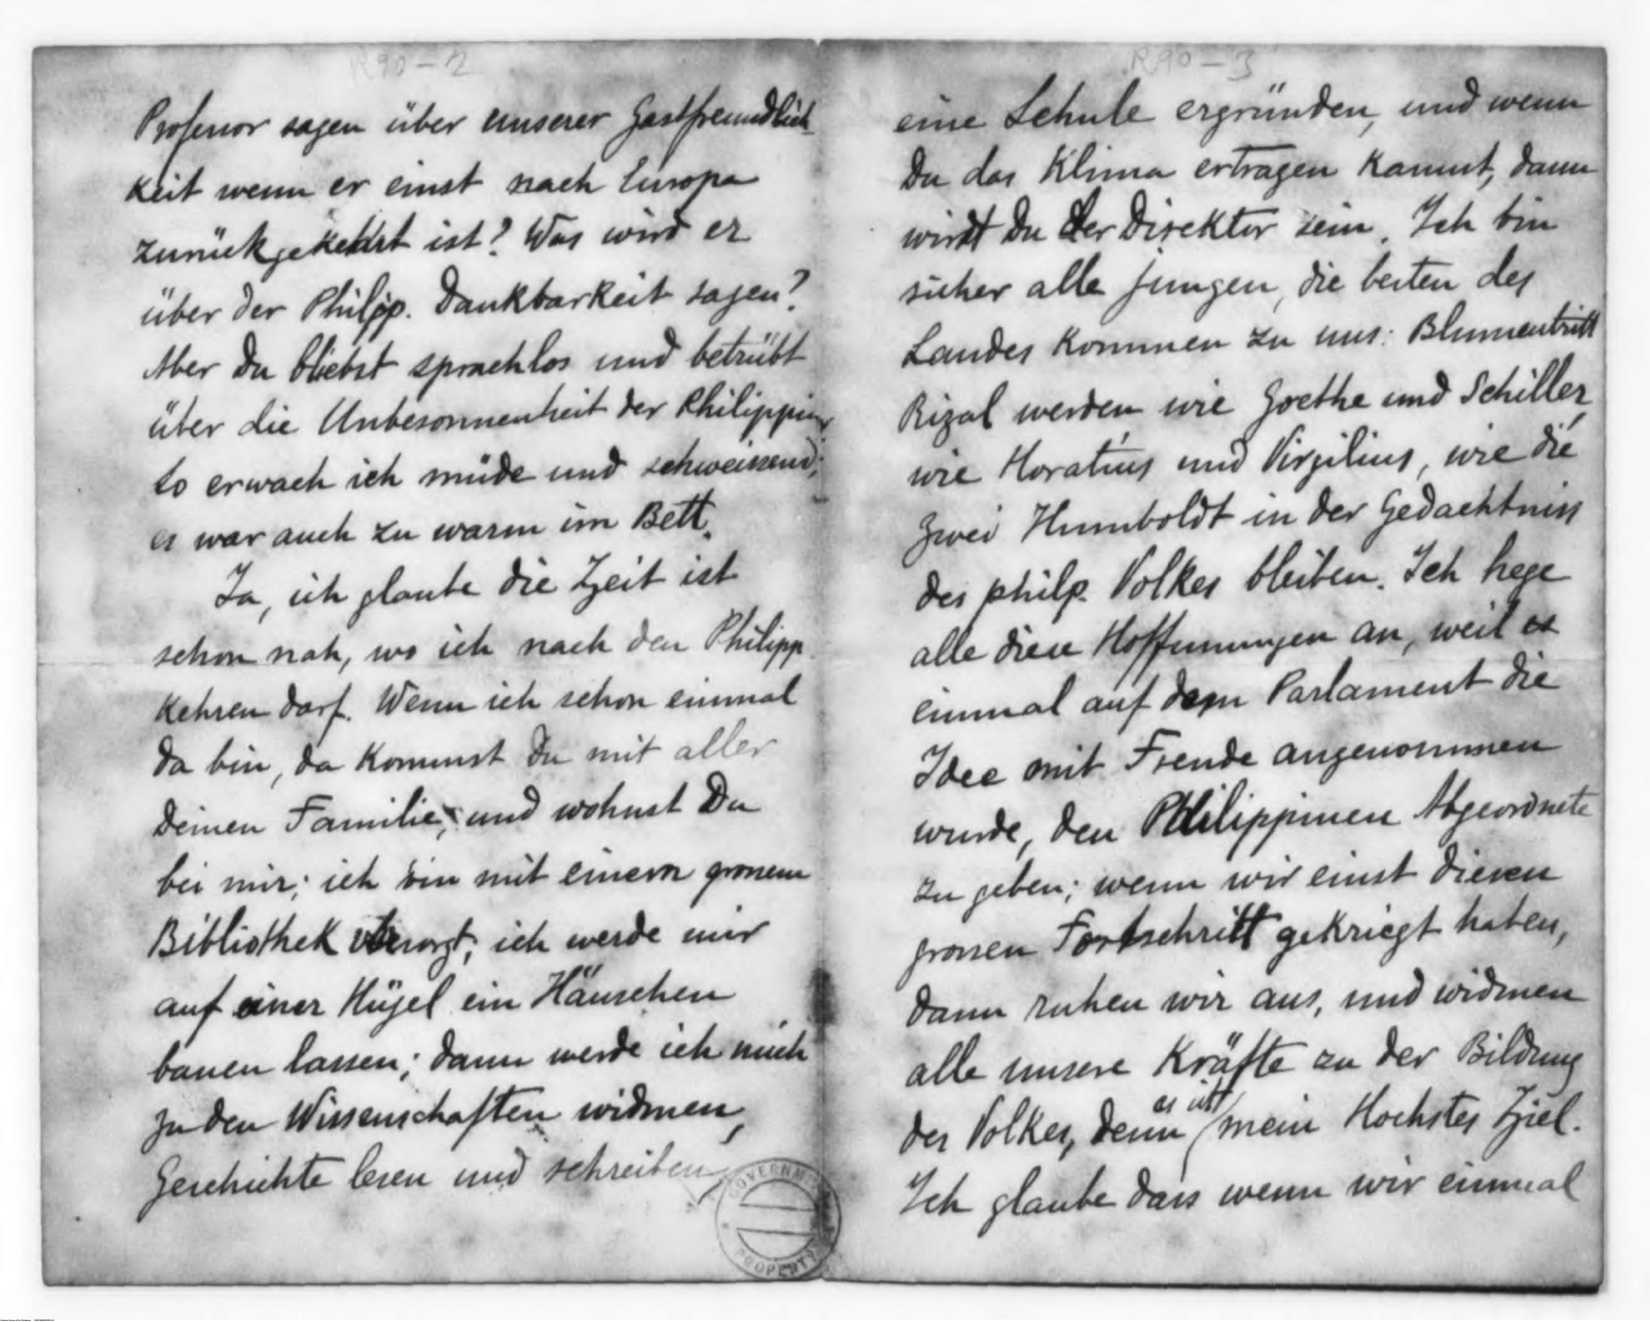 R90-2
Professor sagen über unserer Gastfreundlich
keit wenn er einst nach Europa
zurückgekehrt ist? Was wird er
über der Philipp. Dankbarkeit sagen?
Aber Du bliebst sprachlos und betrübt
über die Unbesonnenheit der Philippiner
so erwach ich müde und schweissend;
es war auch zu warm im Bett.
Ja, ich glaube die Zeit ist
schon nah, wo ich nach den Philipp.
kehren darf. Wenn ich schon einmal
da bin, da kommst Du mit aller
deinen Familie, und wohnst Du
bei mir; ich bin mit einem grossem
Bibliothek versorgt; ich werde mir
auf einer Hügel ein Häuschen
bauen lassen; dann werde ich mich
zu den Wissenschaften widmen,
Geschichte lesen und schreiben,
GOVERNM
PROPERTY
R90-3
eine Schule ergründen, und wenn
Du das Klima ertragen kannst, dann
wirdt Du der Direktor sein. Ich bin
sicher alle jungen, die besten des
Landes kommen zu uns: Blumentritt
Rizal werden wie Goethe und Schiller,
wie Horatius und Virgilius, wie die
zwei Humboldt in der Gedachtniss
des philp. Volkes bleiben. Ich hege
alle diese Hoffnungen an, weil es
einmal auf dem Parlament die
Idee mit Freude angenommen
wurde, den Philippinen Abgeordnete
zu geben; wenn wir einst diesen
grossen Fortschritt gekriegt haben,
dann ruhen wir aus, und widmen
alle unsere Kräfte zu der Bildung
des Volkes, denn es ist mein Hochstes Ziel.
Ich glaube dass wenn wir einmal